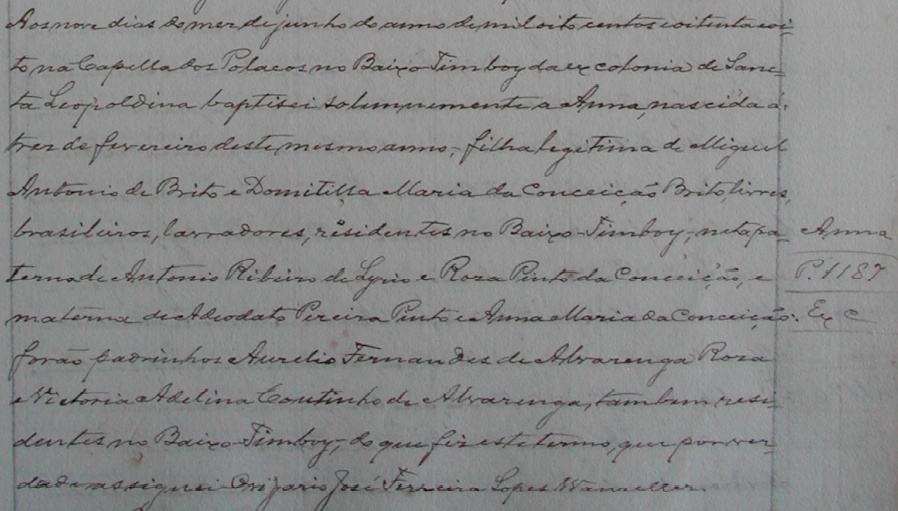 Aos nove dias do mez de junho do anno de mil oito centos e oitenta e oi-
to na Capella dos Polacos no Baixo-Timboy da ex colonia de Sanc-
ta Leopoldina baptisei solemnemente a Anna, nascida á
trez de fevereiro deste mesmo anno, filha legitima de Miguel
Antonio de Brito e Domitilla Maria da Conceição Brito, livres,
brasileiros, lavradores, residentes no Baixo-Timboy, neta pa-
terna de Antonio Ribeiro de Lyrio e Roza Pinto da Conceição, e
materna de Adeodato Pereira Pinto e Anna Maria da Conceição.
forão padrinhos Aurelio Fernandes de Alvarenga Roza
e Victoria Adelina Coutinho de Alvarenga, tambem resi-
dentes no Baixo-Timboy, do que fiz este termo, que por ver-
dade assignei José Ferreira Lopes Wanzeller.
Anna
P. 1187
Ex c